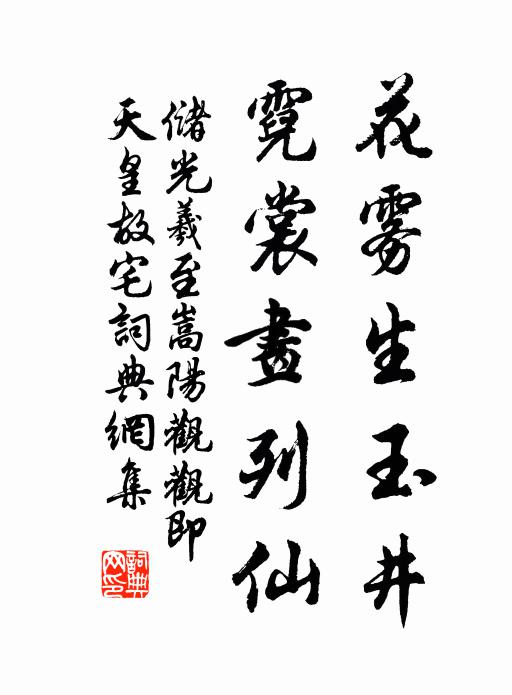 花雾生玉井
霓裳畫列仙
儲光羲至嵩陽觀觀即
天皇故宅詞典網集
詞典网印